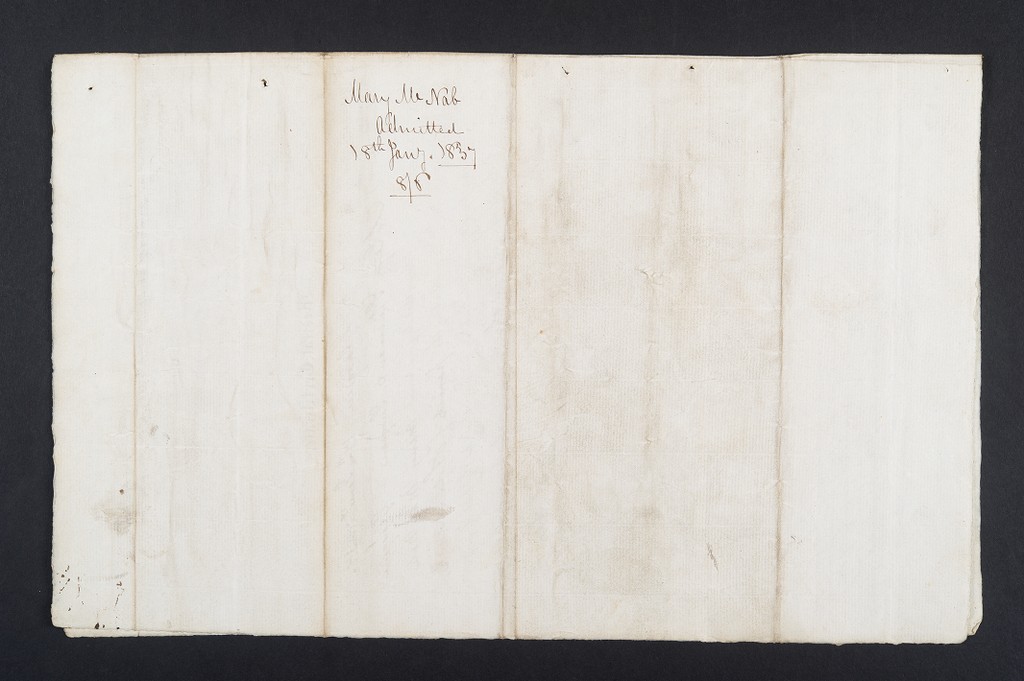 Mary Mc Nab
Admitted
18th Jany. 1837
8/6